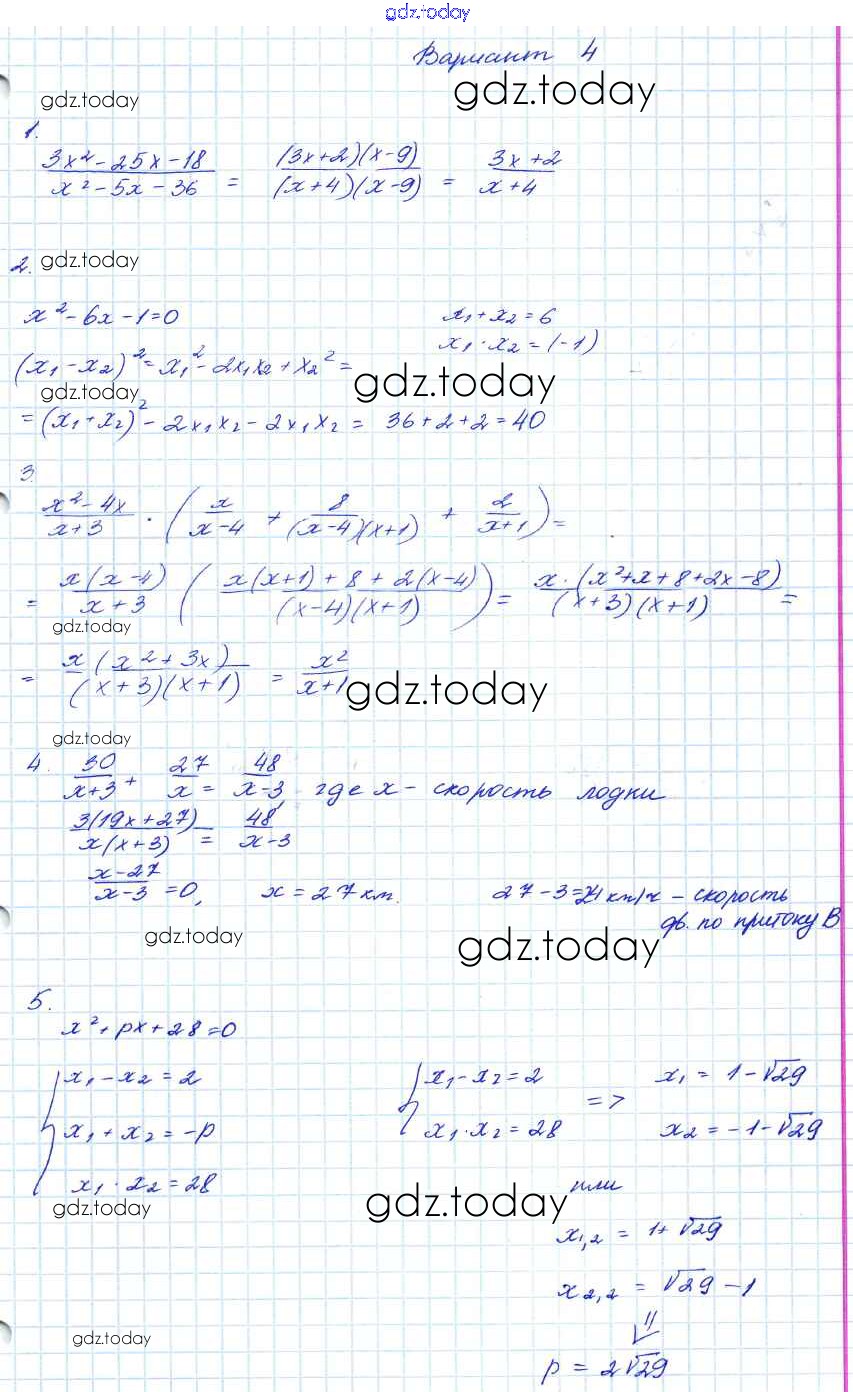 gdz.today
Вариант 4
gdz.today
gdz.today
1.
(3x² - 25x - 18)/(x² - 5x - 36) = ((3x+2)(x-9))/((x+4)(x-9)) = (3x+2)/(x+4)
2. gdz.today
x² - 6x - 1 = 0 x₁ + x₂ = 6
x₁ · x₂ = (-1)
(x₁ - x₂)² = x₁² - 2x₁x₂ + x₂² =
gdz.today
gdz.today
= (x₁ + x₂)² - 2x₁x₂ - 2x₁x₂ = 36 + 2 + 2 = 40
3.
(x² - 4x)/(x+3) · (x/(x-4) + 8/((x-4)(x+1)) + 2/(x+1)) =
= (x(x-4))/(x+3) ((x(x+1) + 8 + 2(x-4))/((x-4)(x+1))) = (x · (x² + x + 8 + 2x - 8))/((x+3)(x+1)) =
gdz.today
= (x(x² + 3x))/((x+3)(x+1)) = x²/(x+1)
gdz.today
gdz.today
4. 30/(x+3) + 27/x = 48/(x-3), где x - скорость лодки
(3(19x+27))/(x(x+3)) = 48/(x-3)
(x-27)/(x-3) = 0, x = 27 км. 27 - 3 = 24 км/ч - скорость
дв. по притоку В
gdz.today
gdz.today
5.
x² + px + 28 = 0
x₁ - x₂ = 2 x₁ - x₂ = 2 => x₁ = 1 - √29
x₁ + x₂ = -p x₁ · x₂ = 28 x₂ = -1 - √29
x₁ · x₂ = 28
gdz.today
gdz.today
или
x₁,₂ = 1 + √29
x₂,₂ = √29 - 1
gdz.today
p = 2√29